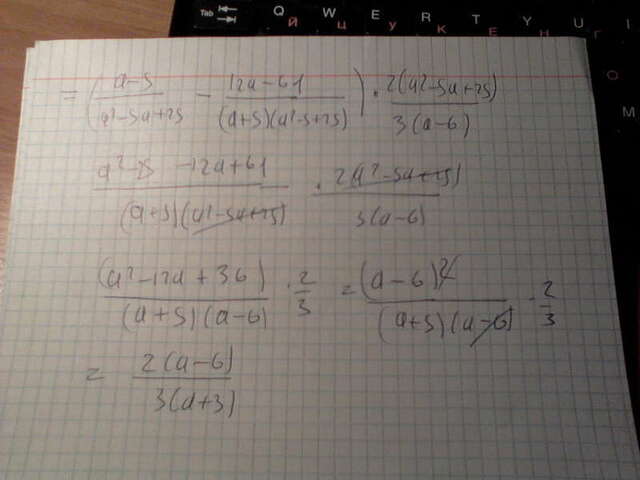 Tab Q W E R T Y U I
Й Ц У К Е Н Г
O
M
= ( a-5 / a²-5a+25 - 12a-61 / (a+5)(a²-5+25) ) · 2(a²-5a+25) / 3(a-6)
a²-25 -12a+61 / (a+5)(a²-5a+25) · 2(a²-5a+25) / 3(a-6)
(a²-12a+36) / (a+5)(a-6) · 2/3 = (a-6)² / (a+5)(a-6) · 2/3
= 2(a-6) / 3(a+3)